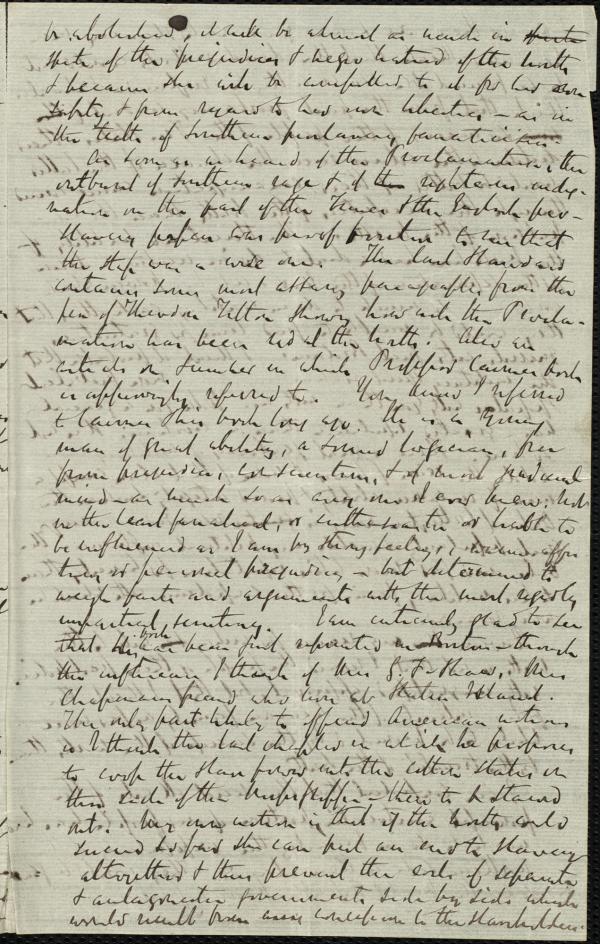 be abolished, it will be almost as much in
spite of the prejudices & negro hatred of the North
& because she will be compelled to it for her own
safety & from regard to her own liberties – as in
the teeth of Southern proslavery fanaticism.
As soon as we heard of the Proclamation, the
outburst of Southern rage & of the righteous indig-
nation on the part of the Times & the English pro-
slavery papers was proof positive to me that
the step was a wise one. The last Standard
contains some most able paragraphs from the
pen of Theodore Tilton showing how well the Procla-
mation has been recd at the North. Also an
article on Sumner in which Professor Cairnes book
is approvingly referred to. You know I referred
to Cairnes & his book long ago. He is a young
man of great ability, a sound logician, free
from prejudice, conscientious, & of most judicial
mind – as much so as any one I ever knew; not
in the least fanatical, or enthusiastic or liable to
be influenced as I am by strong feelings,
or personal prejudices – but determined to
weigh facts and arguments with the most rigidly
impartial scrutiny. I am extremely glad to see
that his book has been first reprinted in Boston – through
the influence I think of Mrs G. F. Shaw, Mrs
Chapman's friend who lives at Staten Island.
The only part likely to offend American
is I think the last chapter in which he proposes
to coop the Slave power into the cotton states on
this side of the Mississippi – there to be starved
out. My own notion is that if the North could
succeed so far she can put an end to Slavery
altogether & thus prevent the evils of separate
& antagonistic governments side by side which
would result from any concession to the slaveholders.